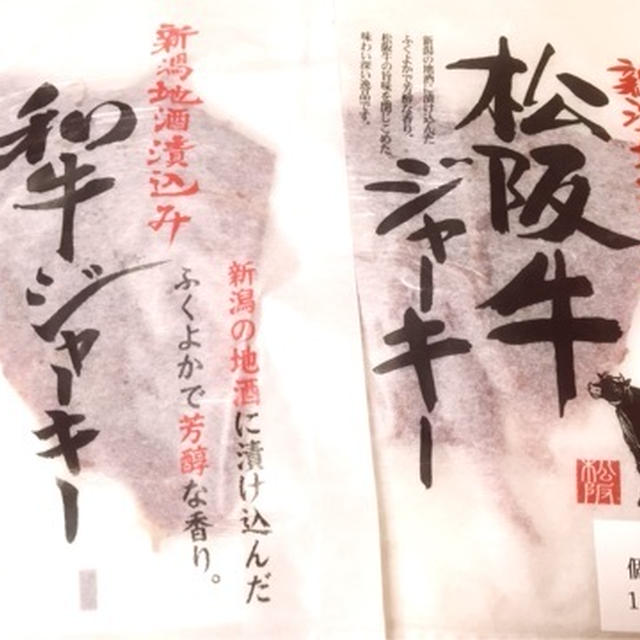 松阪牛
ジャーキー
新潟の地酒に漬け込んだ
ふくよかで芳醇な香り。
松阪牛の旨味を閉じこめた、
味わい深い逸品です。
松阪
個
1
新潟地酒漬込み
和牛ジャーキー
新潟の地酒に漬け込んだ
ふくよかで芳醇な香り。